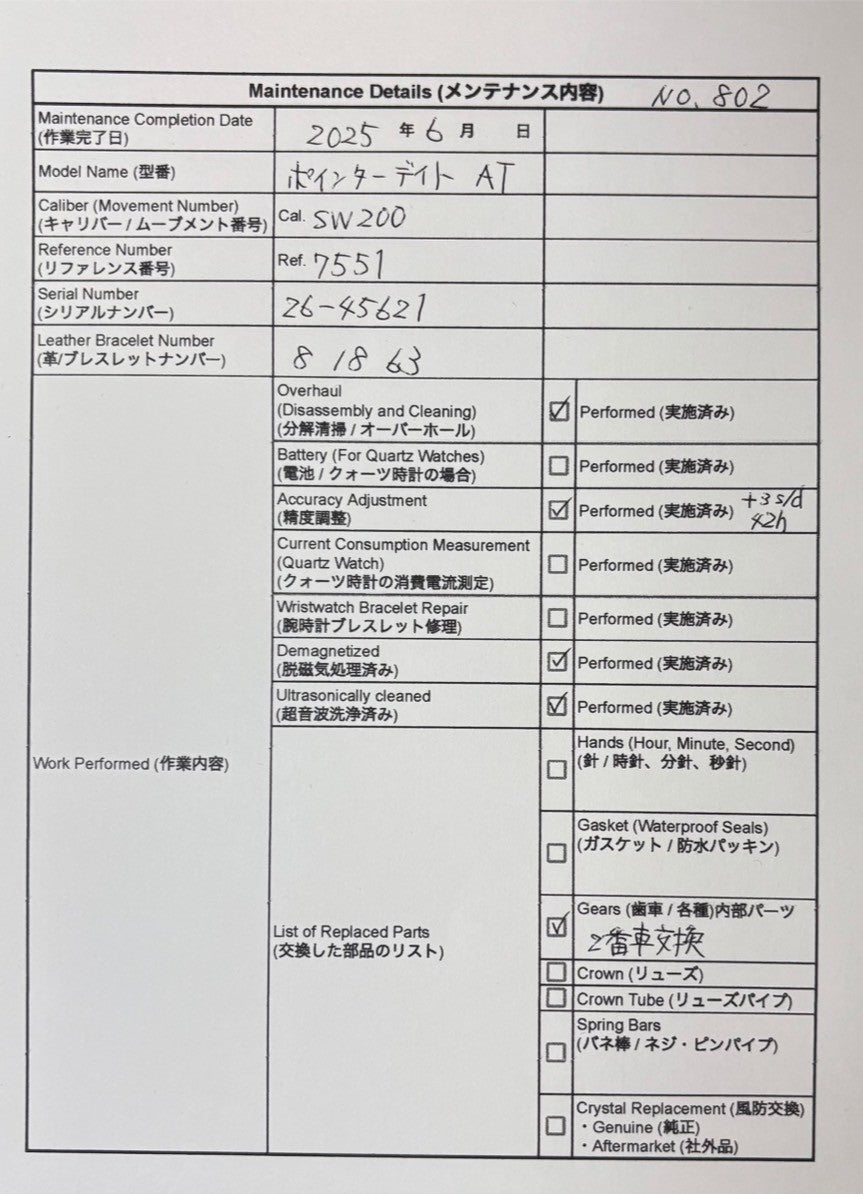 Maintenance Details (メンテナンス内容) NO. 802
Maintenance Completion Date
(作業完了日)
2025 年 6 月 日
Model Name (型番)
ポインターデイト AT
Caliber (Movement Number)
(キャリバー / ムーブメント番号)
Cal. SW200
Reference Number
(リファレンス番号)
Ref. 7551
Serial Number
(シリアルナンバー)
26-45621
Leather Bracelet Number
(革/ブレスレットナンバー)
8 18 63
Work Performed (作業内容)
Overhaul
(Disassembly and Cleaning)
(分解清掃 / オーバーホール)
Performed (実施済み)
Battery (For Quartz Watches)
(電池 / クォーツ時計の場合)
Performed (実施済み)
Accuracy Adjustment
(精度調整)
Performed (実施済み) +3 s/d
42h
Current Consumption Measurement
(Quartz Watch)
(クォーツ時計の消費電流測定)
Performed (実施済み)
Wristwatch Bracelet Repair
(腕時計ブレスレット修理)
Performed (実施済み)
Demagnetized
(脱磁気処理済み)
Performed (実施済み)
Ultrasonically cleaned
(超音波洗浄済み)
Performed (実施済み)
List of Replaced Parts
(交換した部品のリスト)
Hands (Hour, Minute, Second)
(針 / 時針、分針、秒針)
Gasket (Waterproof Seals)
(ガスケット / 防水パッキン)
Gears (歯車 / 各種)内部パーツ
2番車交換
Crown (リューズ)
Crown Tube (リューズパイプ)
Spring Bars
(バネ棒 / ネジ・ピンパイプ)
Crystal Replacement (風防交換)
・Genuine (純正)
・Aftermarket (社外品)